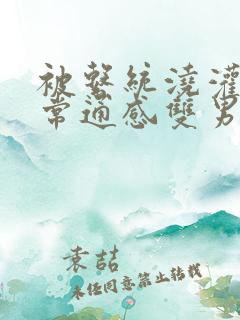 被繫統澆灌
常通感雙男
袁喆
未经同意禁止转载